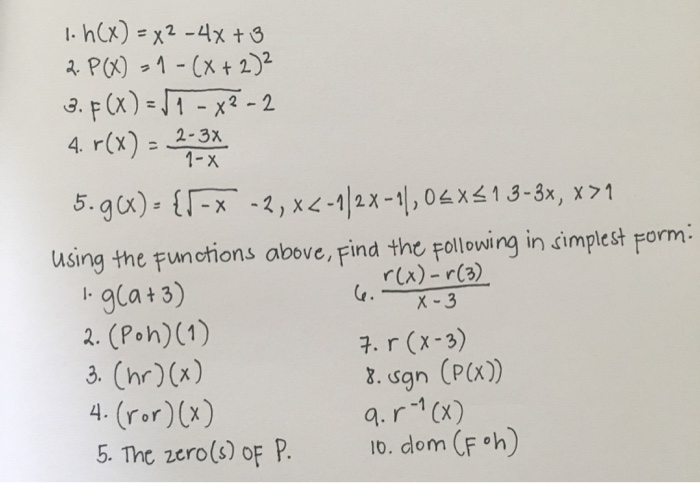 1. h(x) = x² - 4x + 3
2. P(x) = 1 - (x + 2)²
3. F(x) = √1 - x² - 2
4. r(x) = 2-3x / 1-x
5. g(x) = {√-x - 2, x < -1 |2x-1|, 0 ≤ x ≤ 1 3-3x, x > 1
Using the functions above, Find the following in simplest form:
1. g(a+3)
2. (P∘h)(1)
3. (hr)(x)
4. (r∘r)(x)
5. The zero(s) OF P.
6. r(x) - r(3) / x - 3
7. r(x-3)
8. sgn (P(x))
9. r⁻¹(x)
10. dom (F∘h)